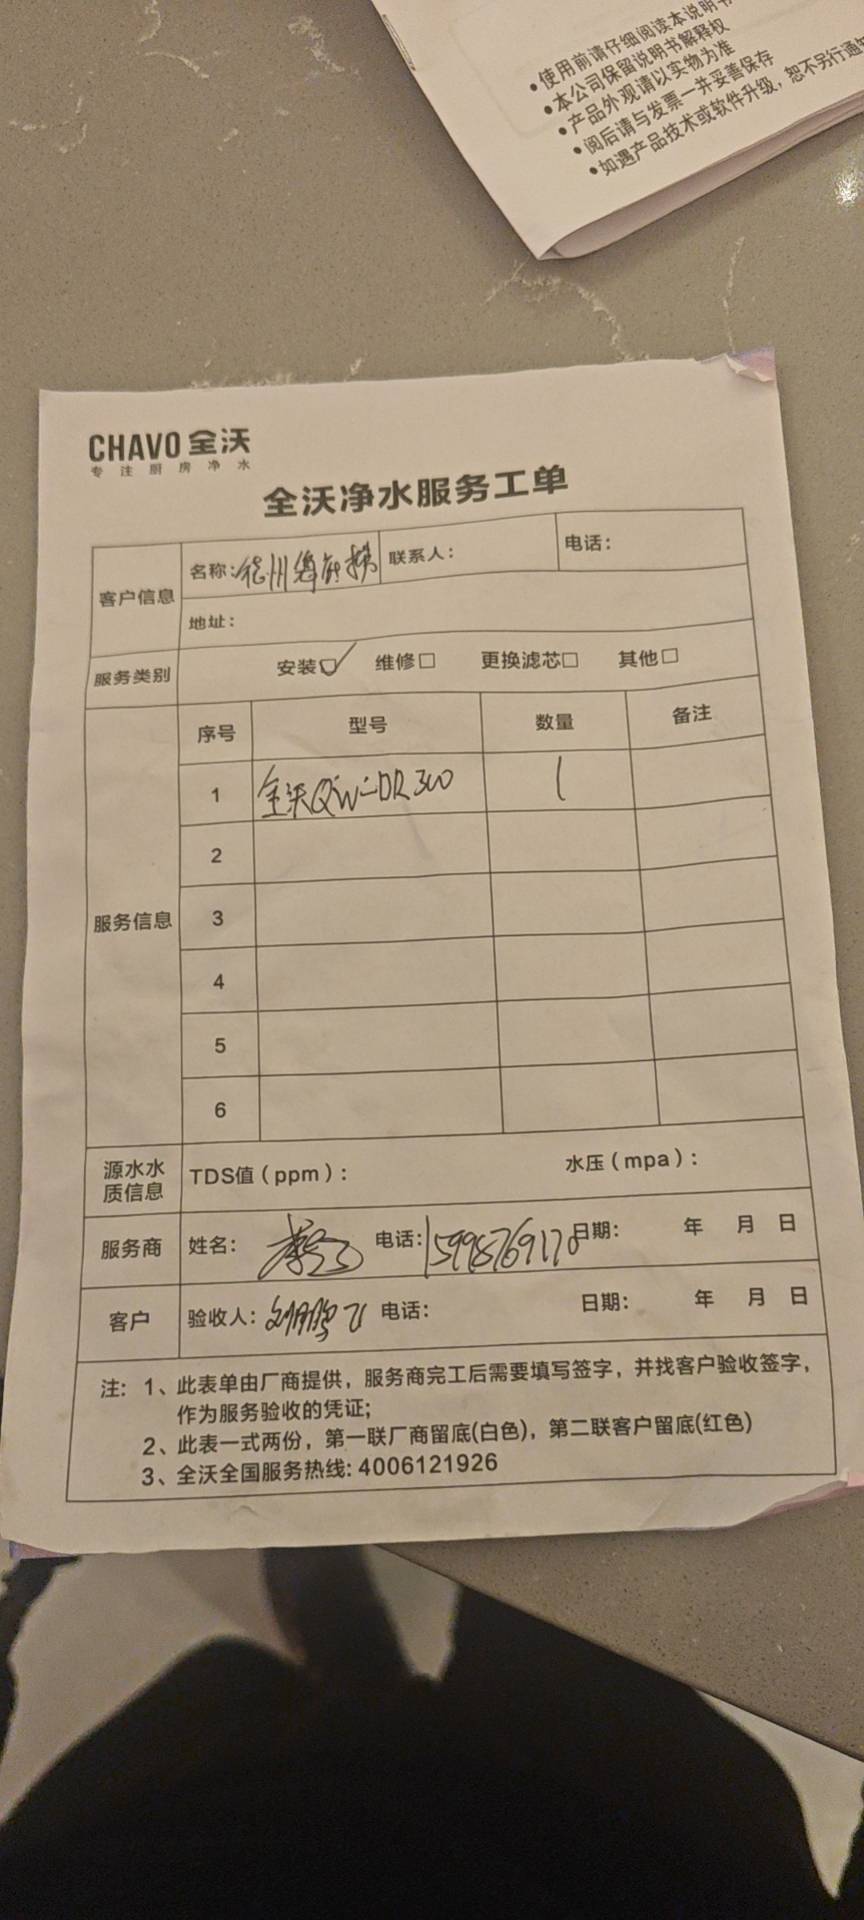 •使用前请仔细阅读本说明书
•本公司保留说明书解释权
•产品外观请以实物为准
•阅后请与发票一并妥善保存
•如遇产品技术或软件升级，恕不另行通知
CHAVO 全沃
专注厨房净水
全沃净水服务工单
客户信息 名称： 联系人： 电话：
地址：
服务类别 安装☑ 维修□ 更换滤芯□ 其他□
服务信息 序号 型号 数量 备注
1 全沃QW-DR300 1
2
3
4
5
6
源水水质信息 TDS值（ppm）： 水压（mpa）：
服务商 姓名： 电话：15998769170 日期： 年 月 日
客户 验收人：刘鹏飞 电话： 日期： 年 月 日
注: 1、此表单由厂商提供，服务商完工后需要填写签字，并找客户验收签字，
作为服务验收的凭证;
2、此表一式两份，第一联厂商留底(白色)，第二联客户留底(红色)
3、全沃全国服务热线: 4006121926